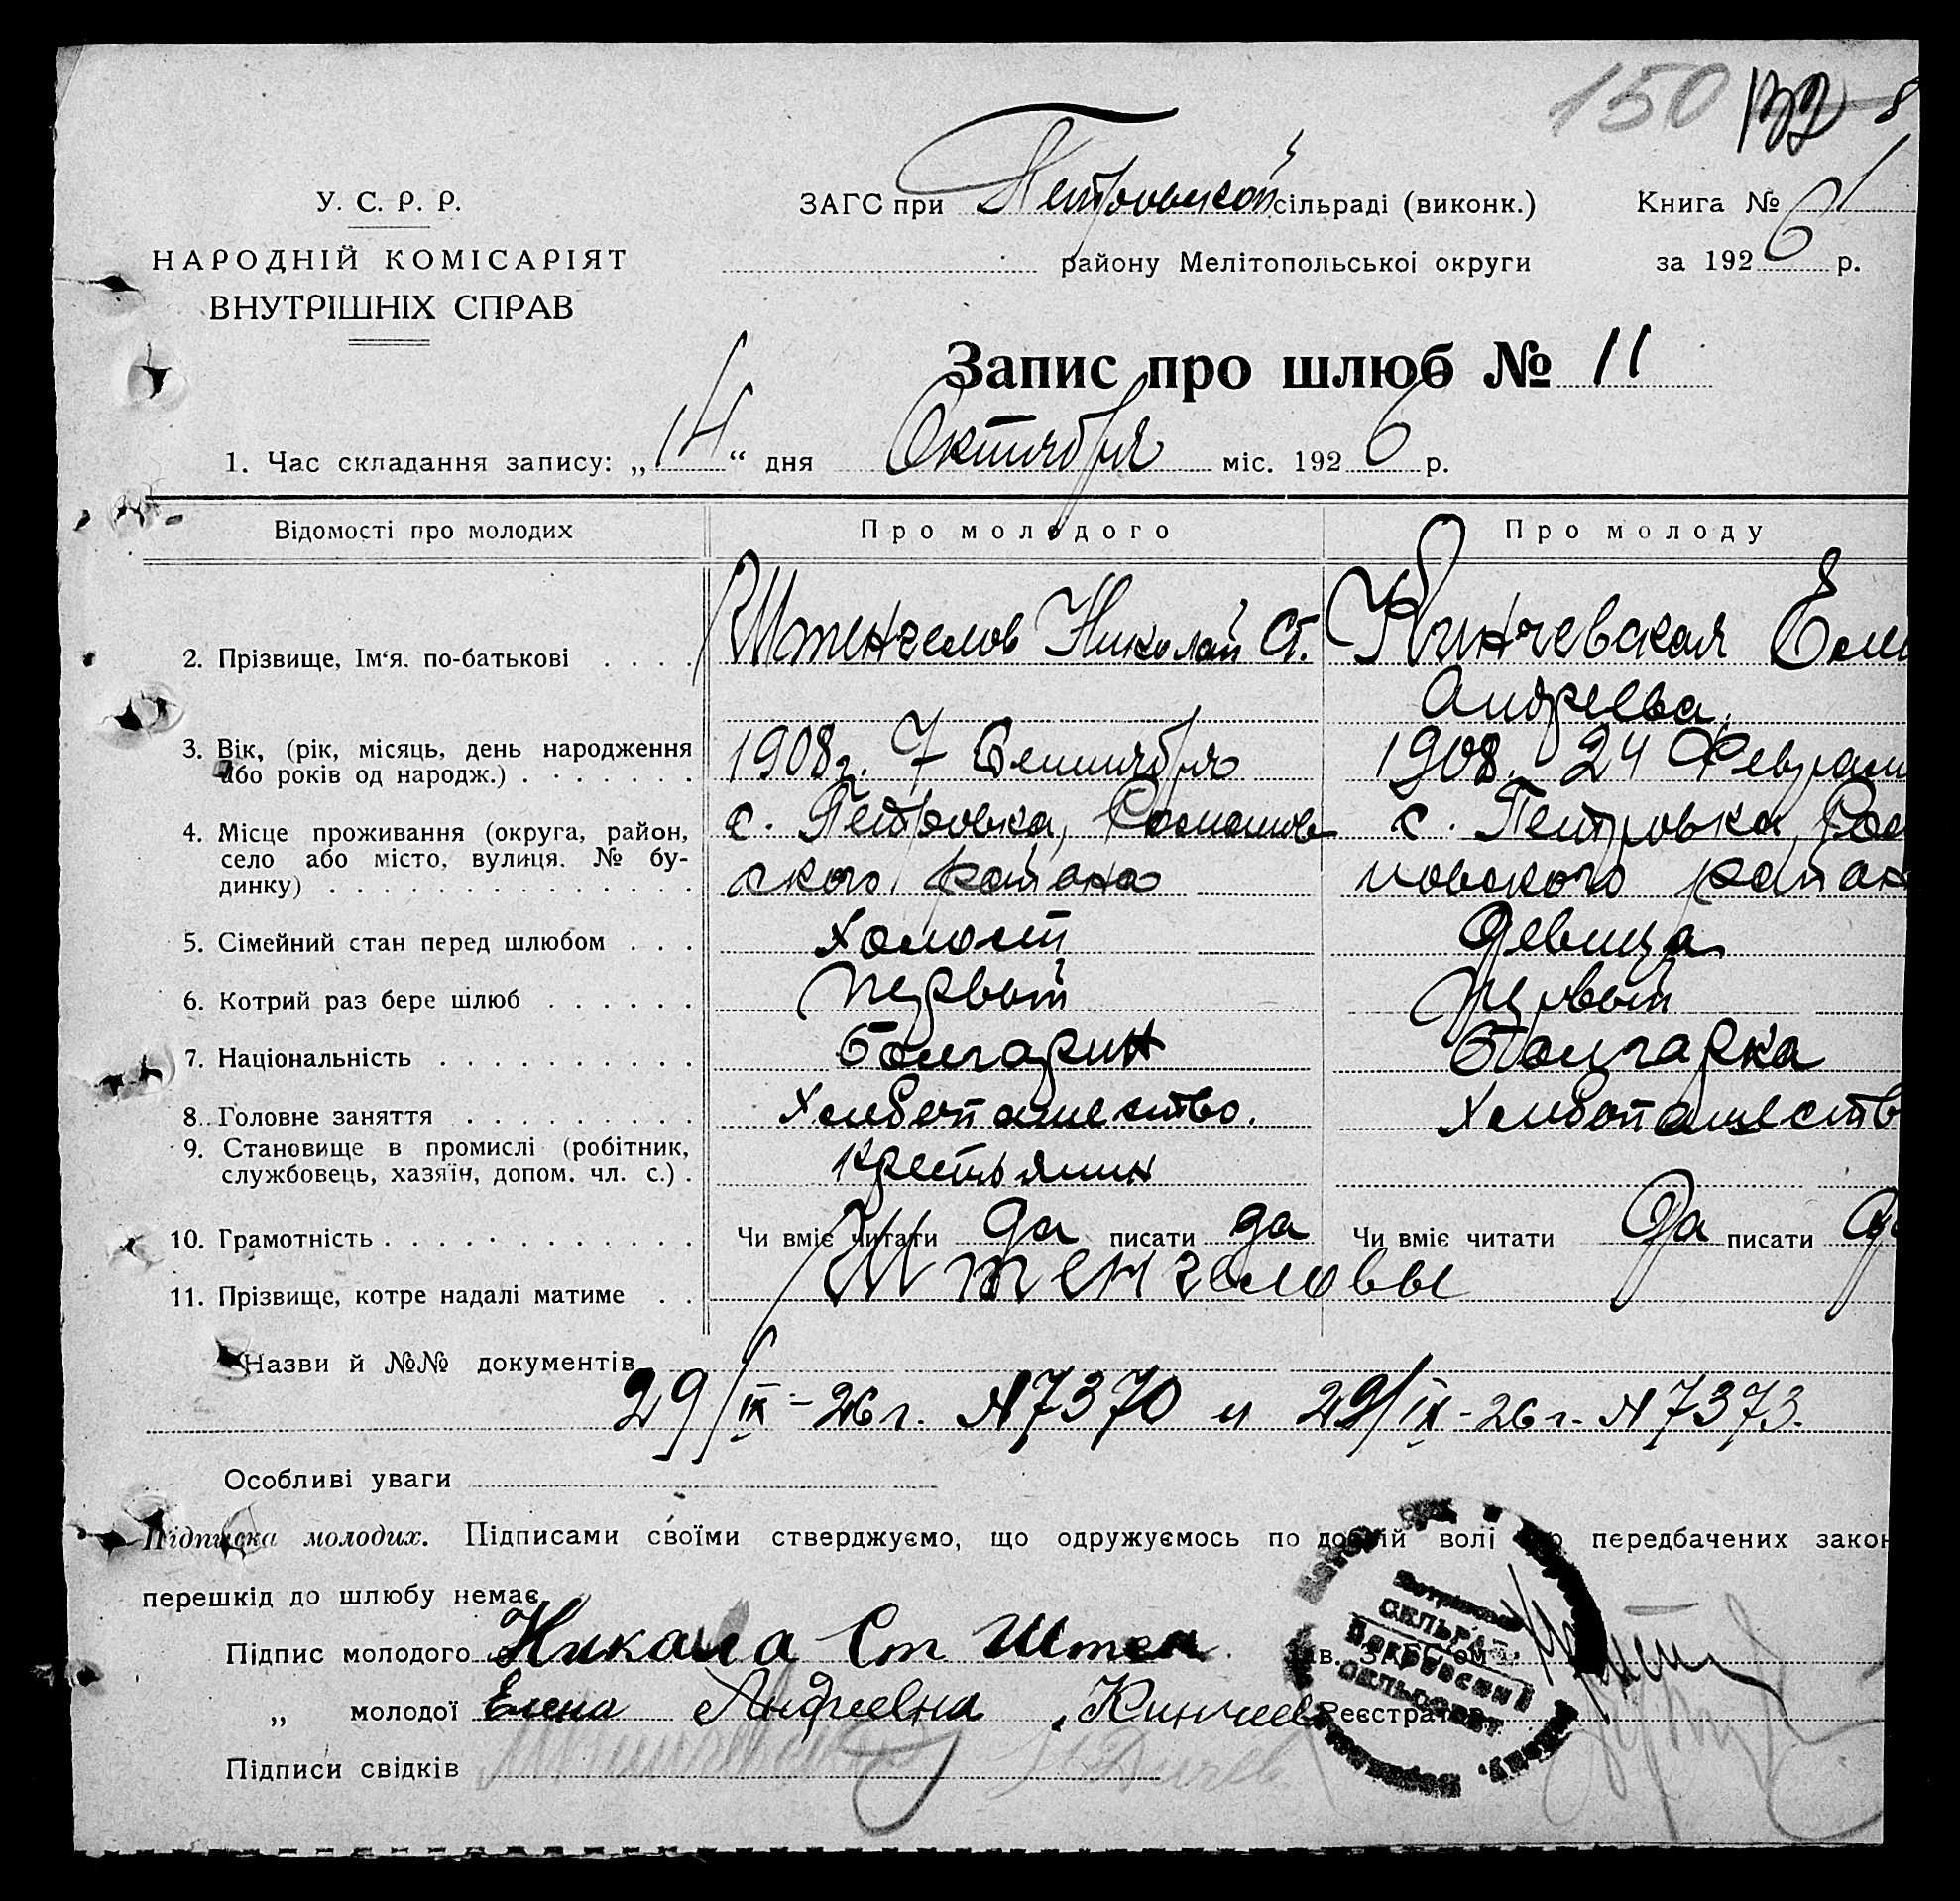 150 132 8
У. С. Р. Р.
НАРОДНІЙ КОМІСАРІЯТ
ВНУТРІШНІХ СПРАВ
ЗАГС при Петровской сільраді (виконк.)
району Мелітопольської округи
Книга № 1
за 1926 р.
Запис про шлюб № 11
1. Час складання запису: „14“ дня Октября міс. 1926 р.
Відомості про молодих Про молодого Про молоду
2. Прізвище, Ім‘я. по-батькові Штенгелов Николай Ст. Кинчевская Еле
Андреева,
3. Вік, (рік, місяць, день народження 1908г. 7 Сентября 1908. 24 Феврал
або років од народж.)
4. Місце проживання (округа, район, с. Петровка, Романов с. Петровка, Ром
село або місто, вулиця. № бу- ского района новского район
динку)
5. Сімейний стан перед шлюбом Холост Девица
6. Котрий раз бере шлюб Первый Первый
7. Національність болгарин болгарка
8. Головне заняття Хлебопашество. Хлебопашеств
9. Становище в промислі (робітник,
службовець, хазяїн, допом. чл. с.) Крестьянин
10. Грамотність Чи вміє читати да писати да Чи вміє читати да писати да
11. Прізвище, котре надалі матиме Штенгеловы
Назви й №№ документів
29/IX-26г. №7370 и 29/IX-26г. №7373.
Особливі уваги
Підписка молодих. Підписами своїми стверджуємо, що одружуємось по добрій волі що передбачених закон
перешкід до шлюбу немає
Підпис молодого Никала Ст Штен Зав. ЗАГС'ом
„ молодої Елена Андреевна Кинчев Реєстратор
Підписи свідків
СІЛЬРАДА
СЕЛЬСОВЕТ